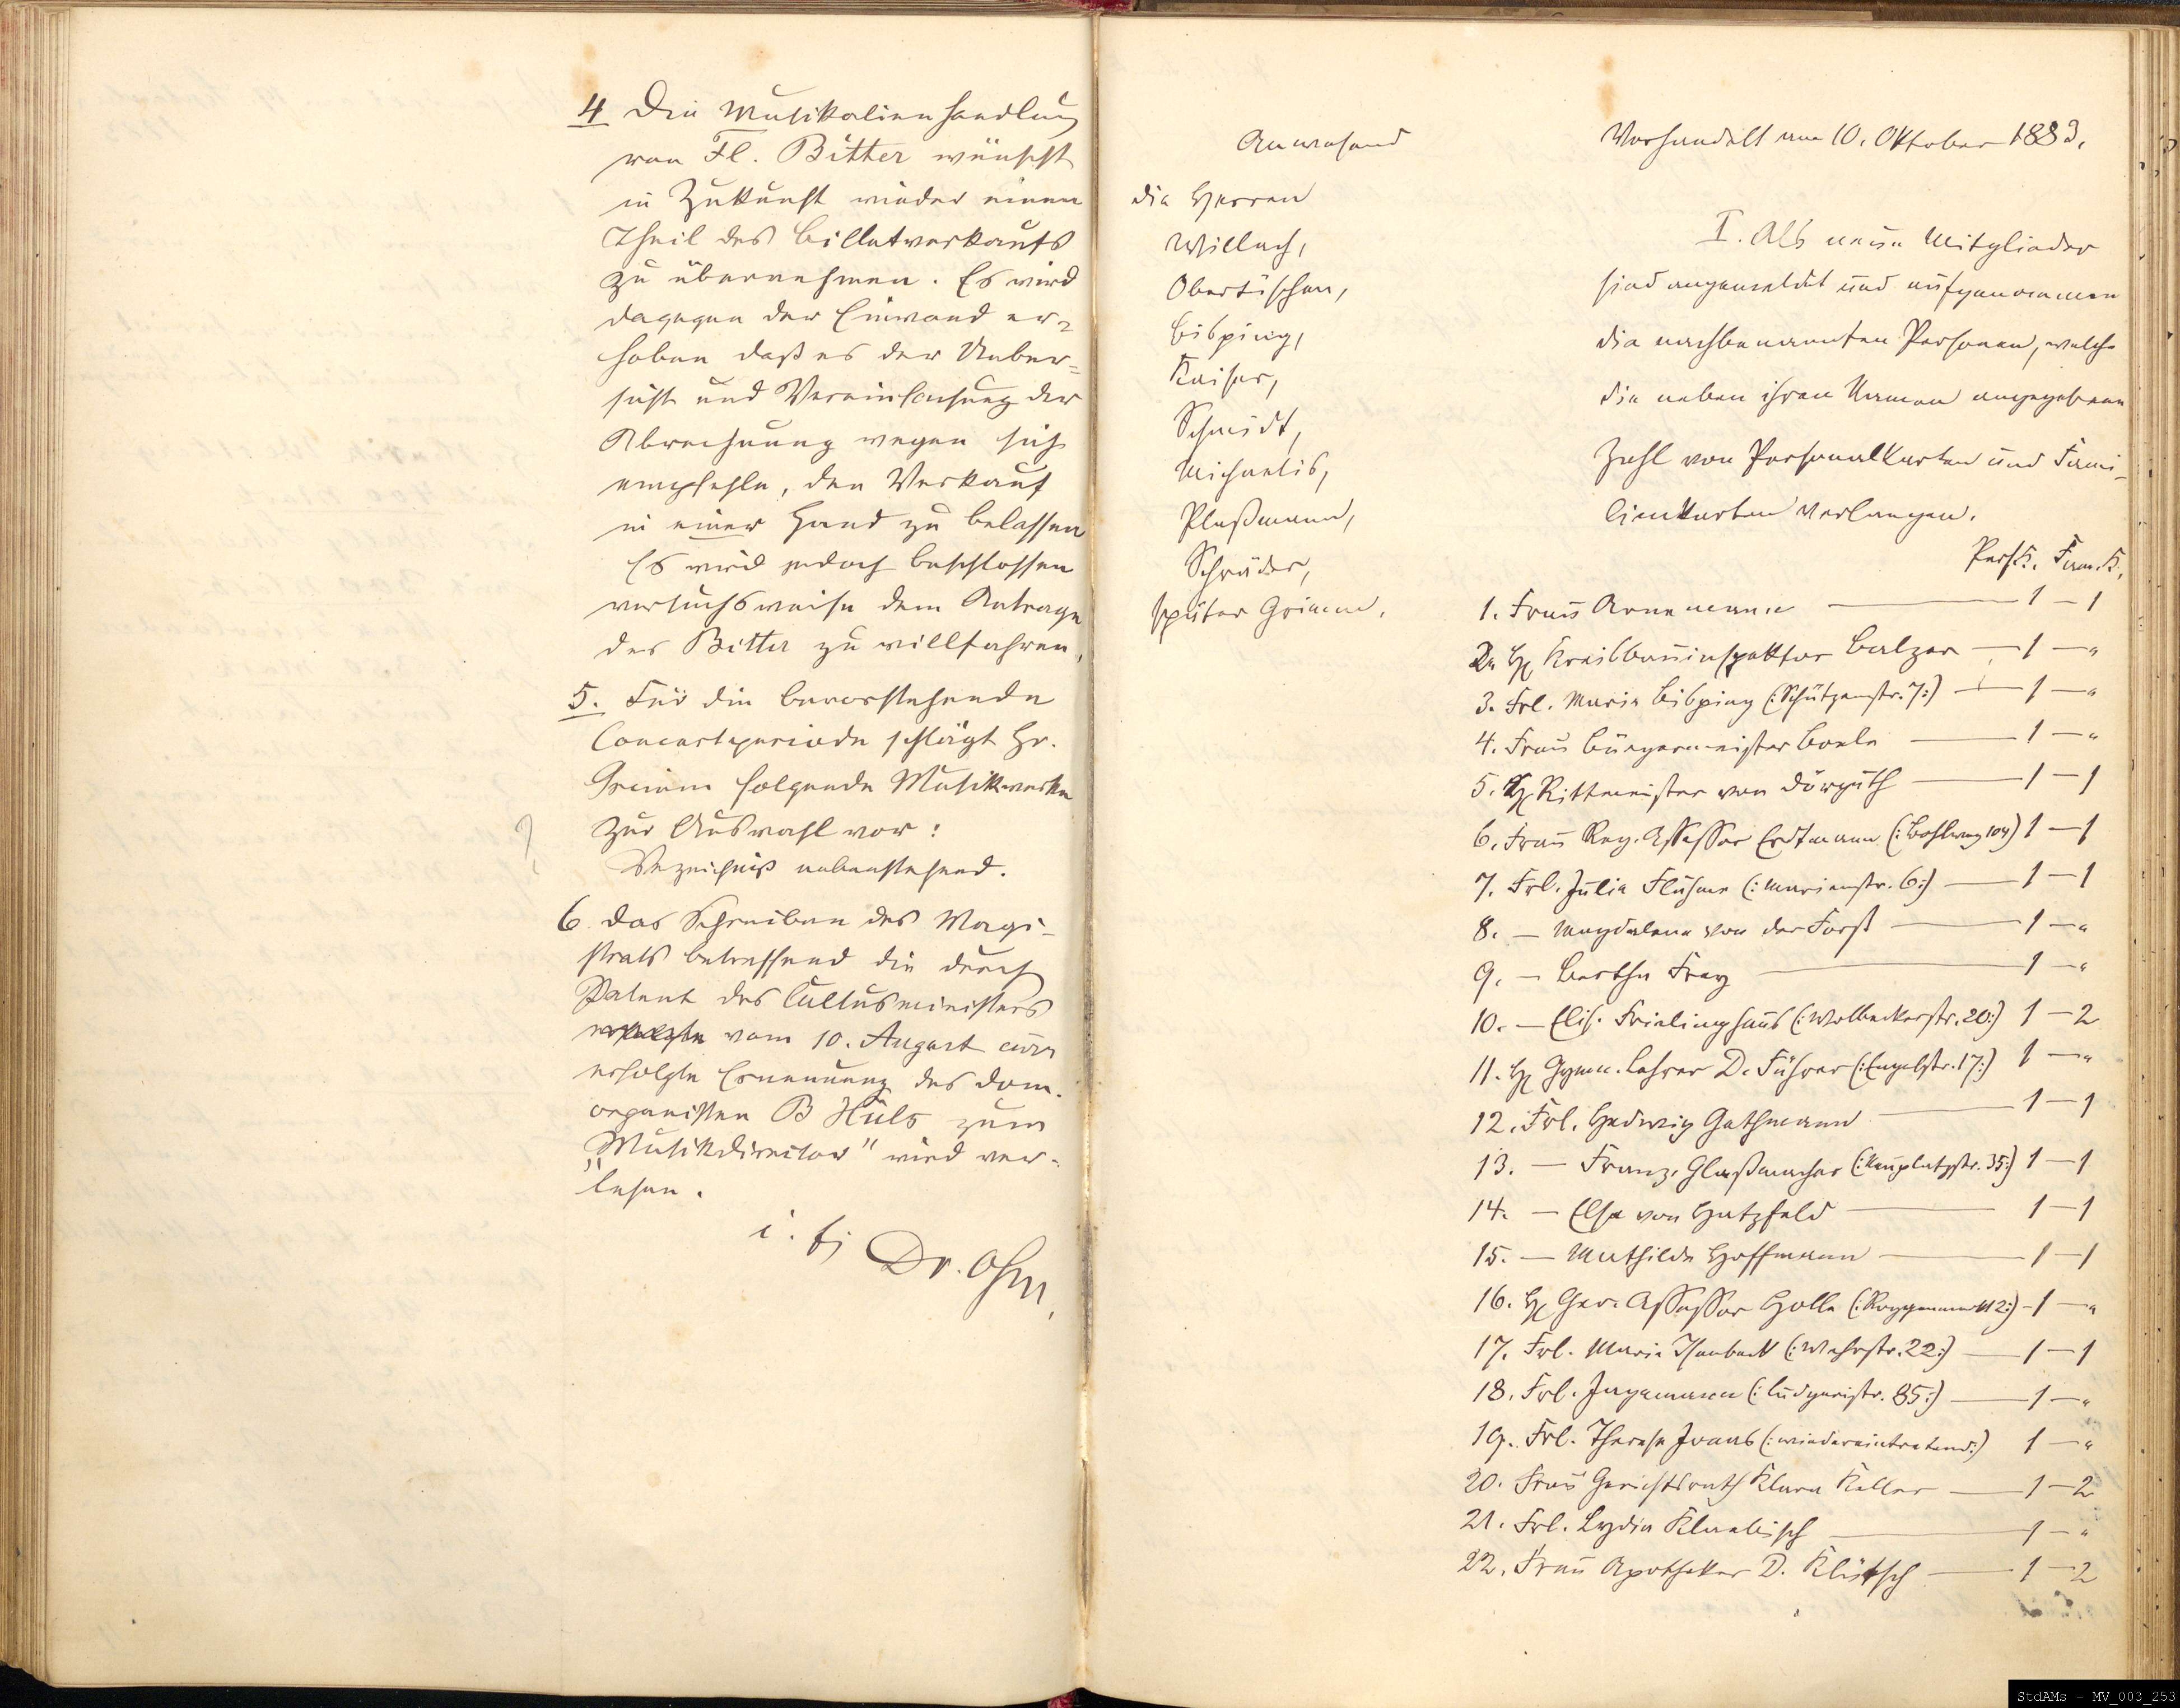 4 Die Musikalienhandlung
von Fl. Bitter wünscht
in Zukunft wieder einen
Theil des Billetverkaufs
zu übernehmen. Es wird
dagegen der Einwand er=
hoben daß es der Ueber=
sicht und Vereinfachung der
Abrechnung wegen sich
empfehle, den Verkauf
in einer Hand zu belassen
Es wird jedoch beschlossen
versuchsweise dem Antrage
des Bitter zu willfahren,
5. Für die bevorstehende
Concertperiode schlägt Hr.
Grimm folgende Musikwerke
zur Auswahl vor:
Verzeichniß nebenstehend.
6 Das Schreiben des Magi-
strats betreffend die durch
Patent des Cultusministers
vom 10. August
erfolgte Ernennung des Dom-
organisten B Hüls zum
„Musikdirector" wird ver-
lesen.
Dr. Ohm,
Anwesend
die Herren
Willach,
Obertüschen,
Bisping,
Kaiser,
Schmidt,
Michaelis,
Plaßmann,
Schräder,
später Grimm.
Verhandelt am 10. Oktober 1883.
I. Als neue Mitglieder
sind angemeldet und aufgenommen
die nachbenannten Personen, welche
die neben ihren Namen angegebene
Zahl von Personalkarten und Fami-
lienkarten verlangen.
PersK. Fam.K.
1. Frau Arnemann — 1 — 1
2. H. Kreisbauinspektor Balzer — 1 — "
3. Frl. Maria Bisping (: Schützenstr. 7:) — 1 — "
4. Frau Bürgermeister Boele — 1 — "
5. H. Rittmeister von Dörguth — 1 — 1
6. Frau Reg. Assessor Erdtmann (: Bohlweg 104) 1 — 1
7. Frl. Julie Flühme (: Marienstr. 6:) — 1 — 1
8. — Magdalena von der Forst — 1 — "
9. — Bertha Frey — 1 — "
10. — Elis. Frielinghaus (: Wolbeckerstr. 20:) 1 — 2
11. H. Gymn. Lehrer D. Führer (: Engelstr. 17:) 1 — "
12. Frl. Hedwig Gathmann — 1 — 1
13. — Franz. Glaßmacher (: Neuplatzstr. 35:) 1 — 1
14. — Else von Hatzfeld — 1 — 1
15. — Mathilde Hoffmann — 1 — 1
16. H. Ger. Assessor Holle (: Roggenmarkt 2:) - 1 — "
17. Frl. Maria Isenbeck (: Wehrstr. 22:) — 1 — 1
18. Frl. Jagemann (: Ludgeristr. 85:) — 1 — "
19. Frl. Therese Jonas (: wiedereintretend:) 1 — "
20. Frau Gerichtsrath Klara Keller — 1 — 2
21. Frl. Lydia Klaebisch — 1 — "
22. Frau Apotheker D. Klütsch — 1 — 2
StdAMs - MV_003_253